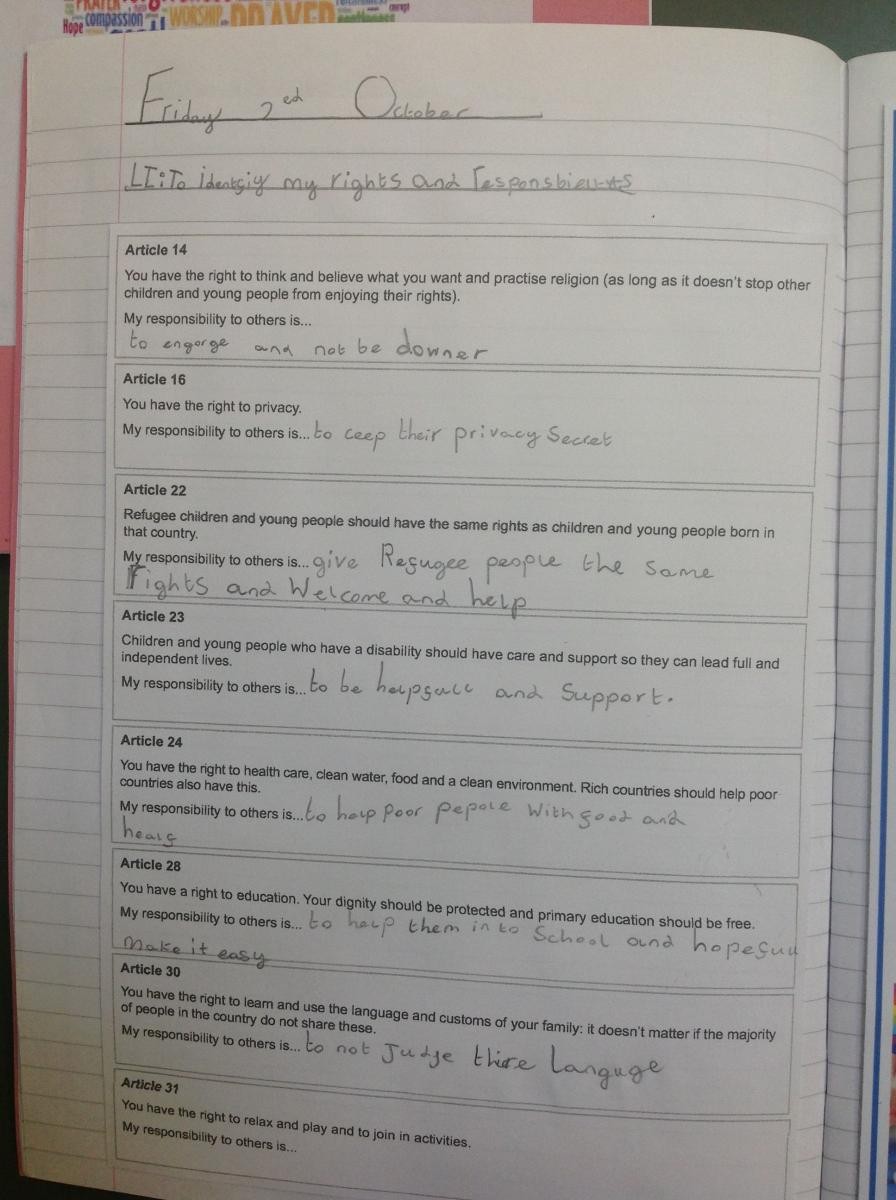 PRAYER
Hope compassion WORSHIP PRAYER
Friday 2ed October
LI: To identgiy my rights and responsbieutis
Article 14
You have the right to think and believe what you want and practise religion (as long as it doesn't stop other
children and young people from enjoying their rights).
My responsibility to others is...
to engorge and not be downer
Article 16
You have the right to privacy.
My responsibility to others is... to ceep their privacy Secret
Article 22
Refugee children and young people should have the same rights as children and young people born in
that country.
My responsibility to others is... give Regugee people the same
rights and Welcome and help
Article 23
Children and young people who have a disability should have care and support so they can lead full and
independent lives.
My responsibility to others is... to be helpgull and Support.
Article 24
You have the right to health care, clean water, food and a clean environment. Rich countries should help poor
countries also have this.
My responsibility to others is... to help poor pepole with good and
healg
Article 28
You have a right to education. Your dignity should be protected and primary education should be free.
My responsibility to others is... to help them in to School and hopegull
make it easy
Article 30
You have the right to learn and use the language and customs of your family: it doesn't matter if the majority
of people in the country do not share these.
My responsibility to others is... to not Judge thire languge
Article 31
You have the right to relax and play and to join in activities.
My responsibility to others is...